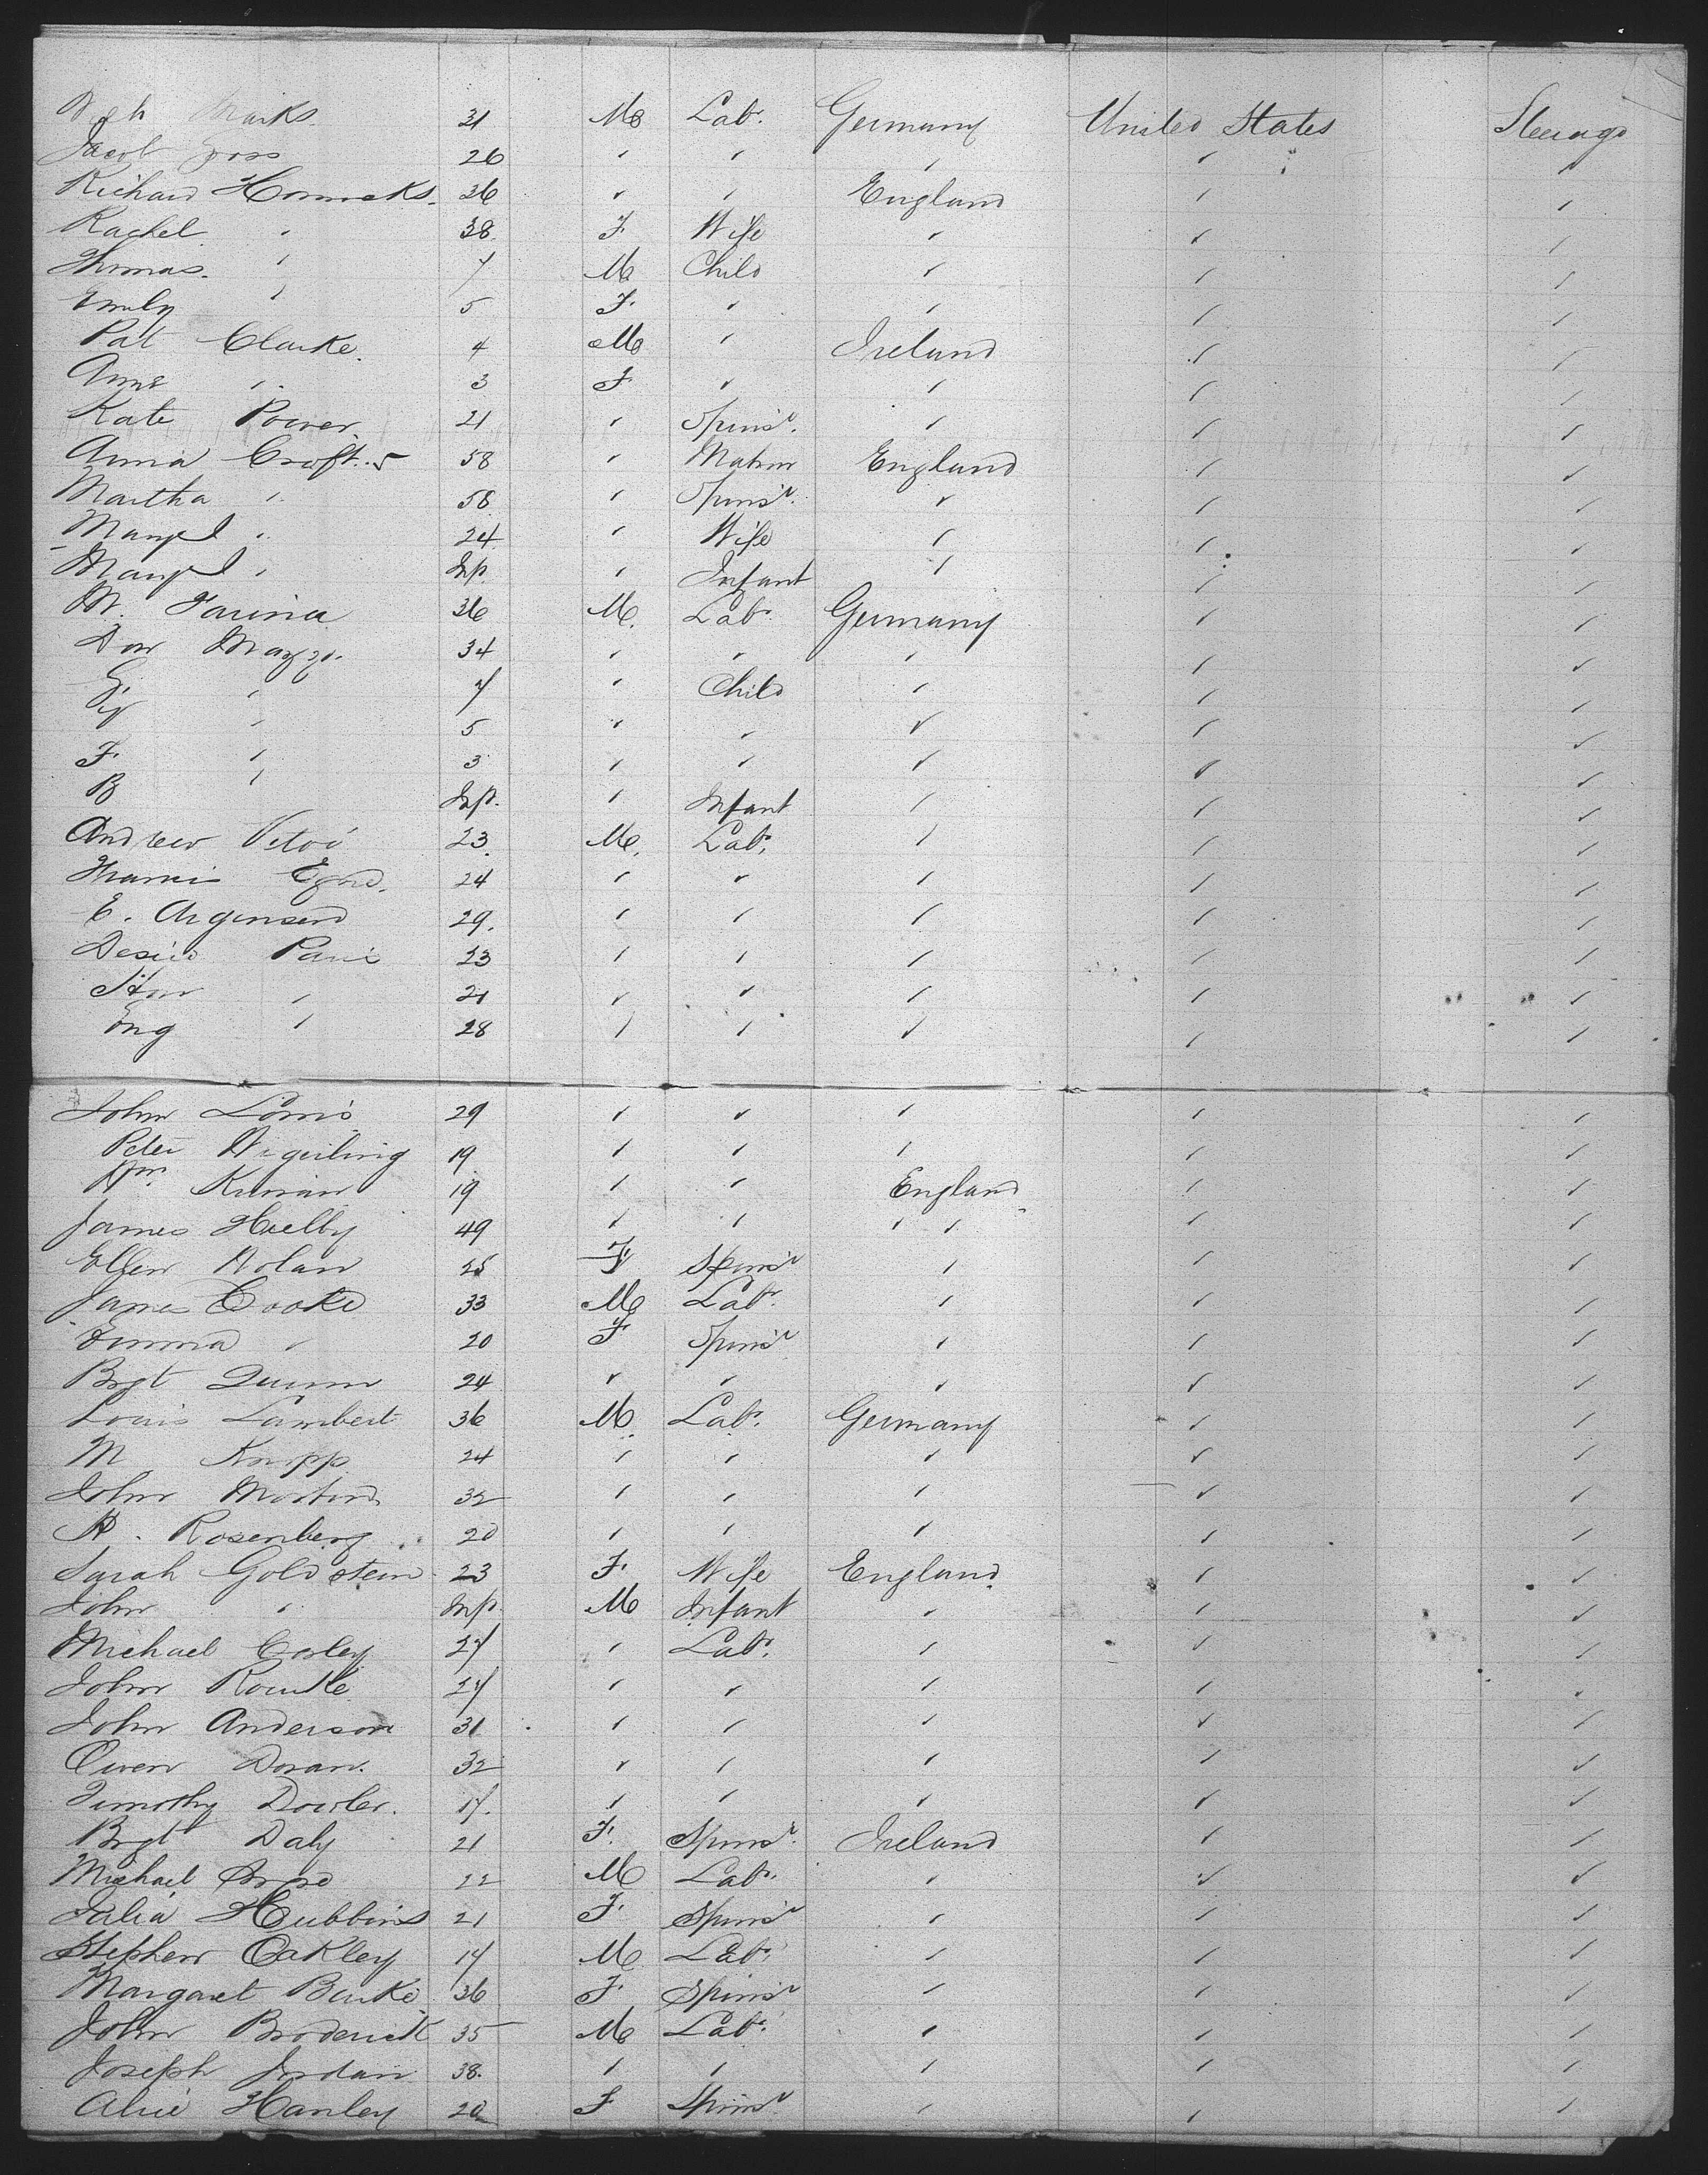 Marks. 31 M Labr. Germany United States Steerage
Jacob 26 " " " " "
Richard Horrocks. 36 " " England " "
Rachel " 38. F Wife " " "
Thomas. " 7 M Child " " "
Emily " 5 F. " " " "
Pat Clarke. 4 M " Ireland " "
Anne " 3 F " " " "
Kate Power. 21 " Spinsr. " " "
Anna Crofts 58 " Matron England " "
Martha " 58. " Spinsr. " " "
Margt " 24 " Wife " " "
Margt " Inf. " Infant " " "
M. Farina 36 M. Labr. Germany " "
34 " " " " "
" 7 " Child " " "
" 5 " " " " "
F. " 3 " " " " "
B " Inf. " Infant " " "
Andrew 23. M. Labr. " " "
24 " " " " "
E. 29. " " " " "
23 " " " " "
" 21 " " " " "
Eng " 28 " " " " "
John Louis 29 " " " " "
Peter 19 " " " " "
Wm. Kirwan 19 " " England " "
James 49 " " " " " "
Ellen Dolan 25 F Spinsr " " "
James Cooke 33 M Labr. " " "
Emma " 20 F Spinsr " " "
Brgt Quinn 24 " " " " "
Louis Lambert 36 M. Labr. Germany " "
M Knipp 24 " " " " "
John Martin 32 " " " " "
Rosenberg 20 " " " " "
Sarah Goldstein 23 F. Wife England. " "
John " Inf. M Infant " " "
Michael Corley 27 " Labr. " " "
John Rourke 27 " " " " "
John Anderson 31 " " " " "
Owen Doran. 32 " " " " "
Timothy Dowler. 17. " " " " "
Brgt Daly 21 F. Spinsr. Ireland " "
Michael 22 M Labr. " " "
Julia Hubbins 21 F. Spinsr " " "
Stephen Oakley 17 M Labr. " " "
Margaret Burke 36 F. Spinsr " " "
John Broderick 35 M Labr. " " "
Joseph Jordan 38. " " " " "
Alice Hanley 20 F Spinsr " " "